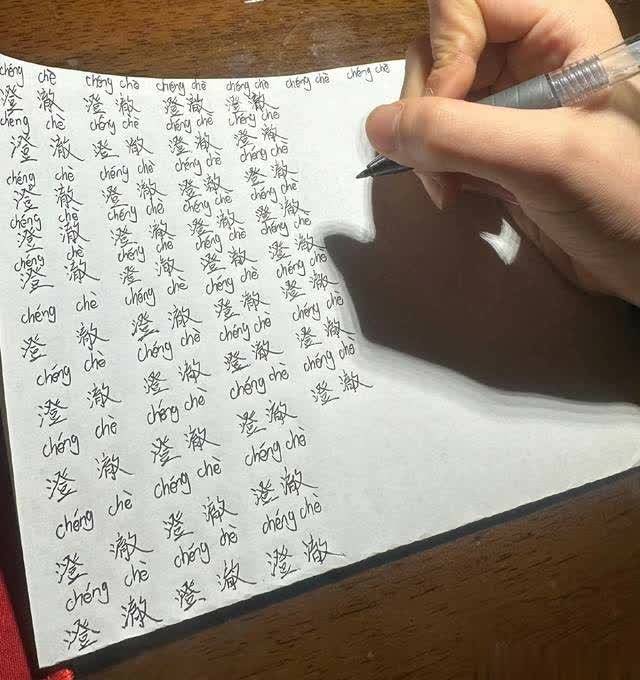 chéng chè chéng chè chéng chè chéng chè chéng chè chéng chè
澄澈 澄澈 澄澈 澄澈
chéng chè chéng chè chéng chè chéng chè
澄澈 澄澈 澄澈 澄澈
chéng chè chéng chè chéng chè chéng chè
澄澈 澄澈 澄澈 澄澈
chéng chè chéng chè chéng chè chéng chè
澄澈 澄澈 澄澈 澄澈
chéng chè chéng chè chéng chè chéng chè
澄澈 澄澈 澄澈 澄澈
chéng chè chéng chè chéng chè chéng chè
澄澈 澄澈 澄澈 澄澈
chéng chè chéng chè chéng chè chéng chè
澄澈 澄澈 澄澈 澄澈
chéng chè chéng chè chéng chè chéng chè
澄澈 澄澈 澄澈 澄澈
chéng chè chéng chè chéng chè
澄澈 澄澈 澄澈
chéng chè chéng chè chéng chè
澄澈 澄澈 澄澈